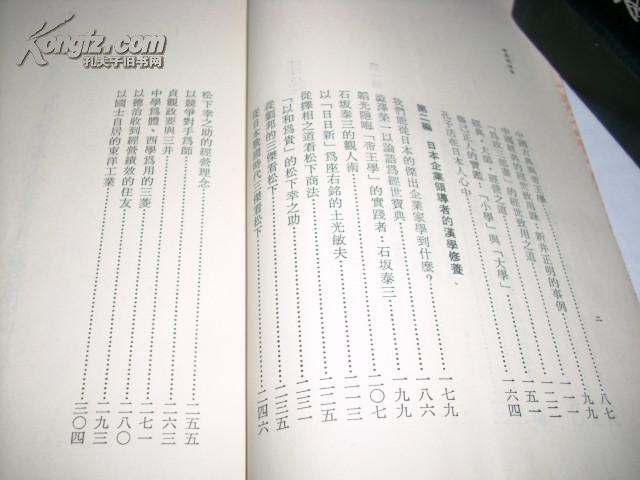 Kongfz.com
孔夫子旧书网
二
中國古典與帝王學……八七
中國古典的經世致用錄：新井正明的事例……九九
「為政三部書」的經世致用之道……一一一
經典、大道、經營之道……一二二
修己正人的寶鑑：「小學」與「大學」……一五一
孔子活在日本人心中……一六四
第二編 日本企業領導者的漢學修養
我們能從日本的傑出企業家學到什麼？……一七九
澁澤榮一以論語為經世寶典……一八六
韜光隱晦「帝王學」的實踐者：石坂泰三……一九九
石坂泰三的觀人術……二〇七
以「日日新」為座右銘的土光敏夫……二一三
從擇相之道看松下商法……二二五
「以和為貴」的松下幸之助……二三二
從劉邦的三傑看松下……二三五
從日本戰國時代三傑看松下……二四六
松下幸之助的經營理念……二五五
以競爭對手為師……二六三
貞觀政要與三井……二七一
中學為體、西學為用的三菱……二八〇
以德治收到經營績效的住友……二九三
以國士自居的東洋工業……三〇四